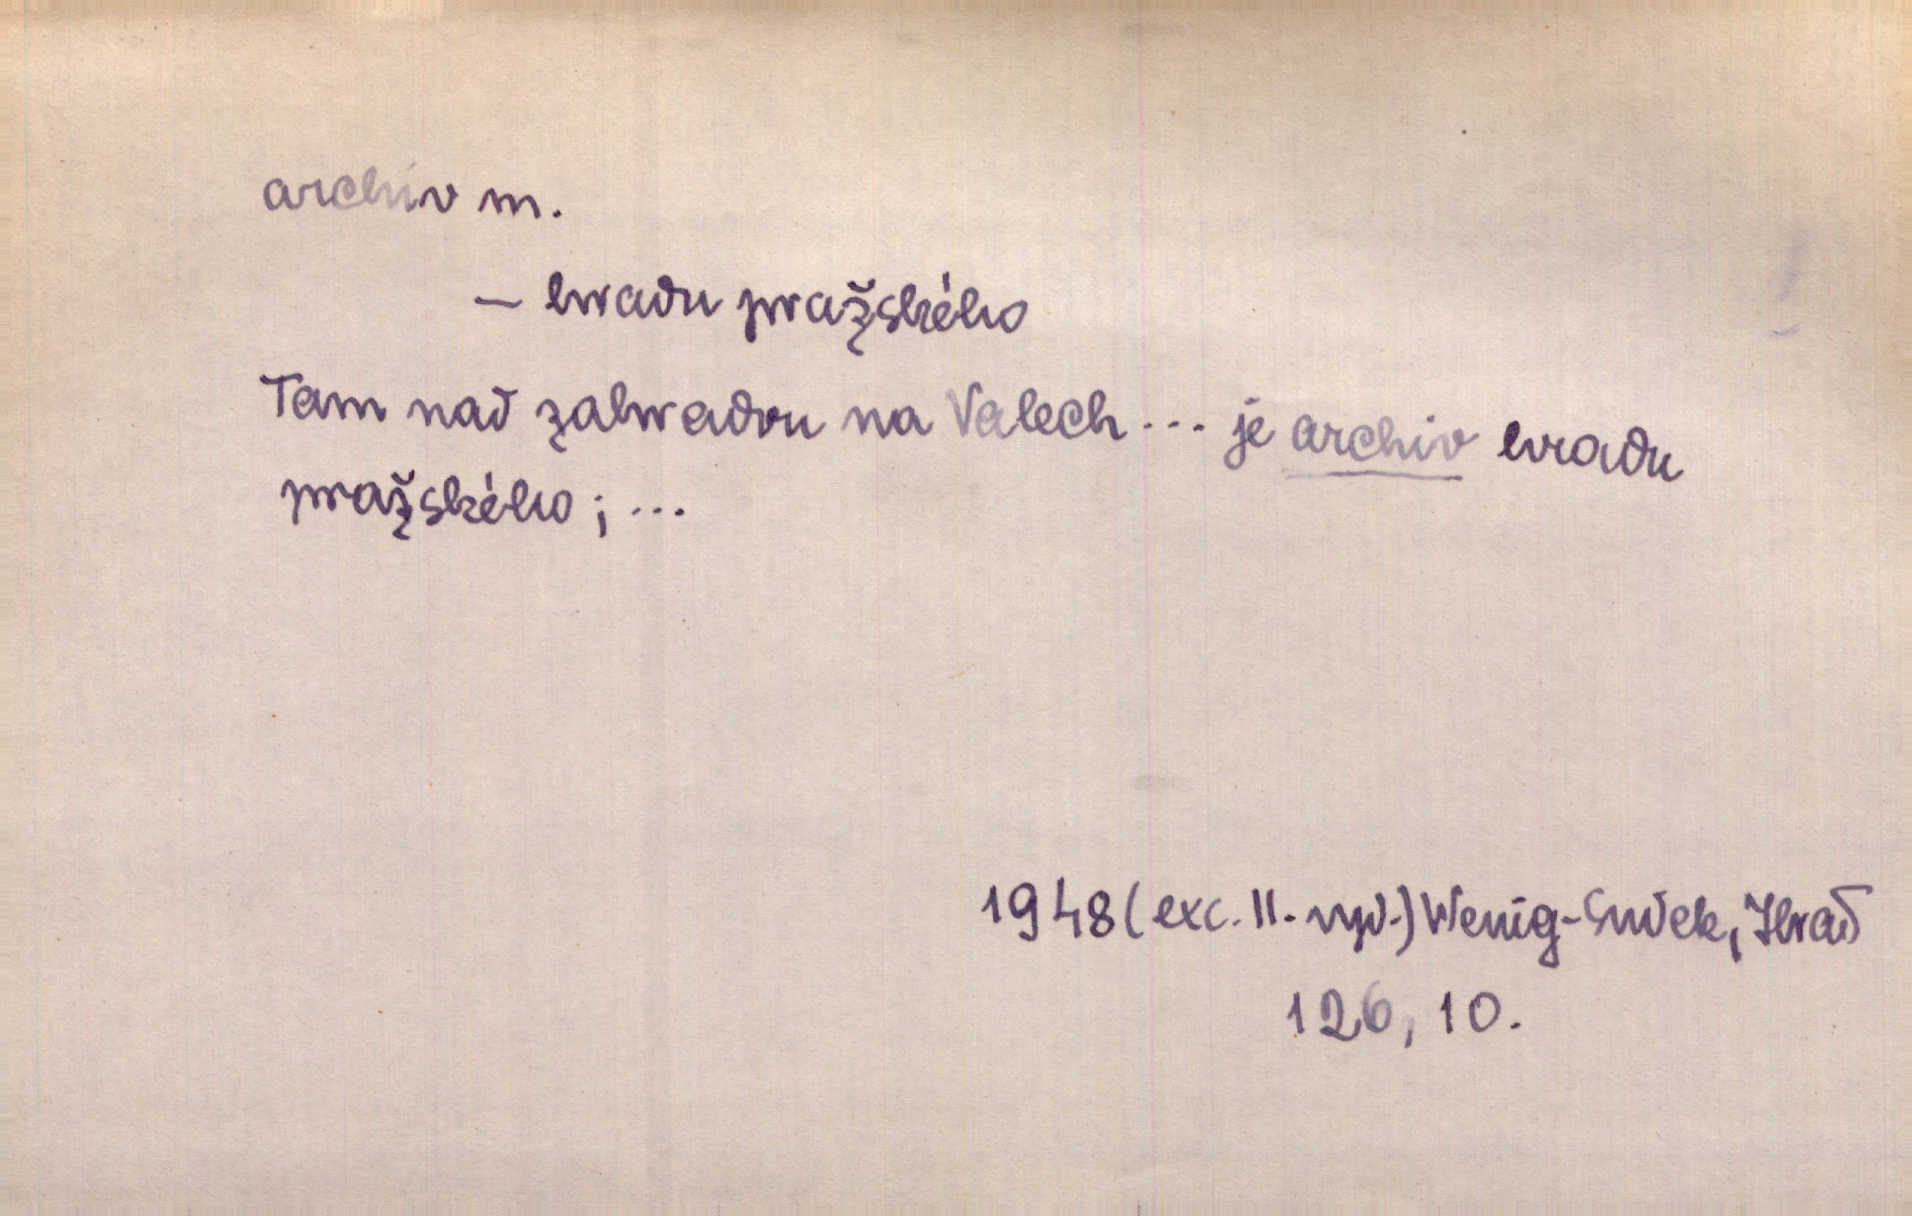 archiv m.
– hradu pražského
Tam nad zahradou na Valech ... je archiv hradu
pražského; ...
1948 (exc. II. vyd.) Wenig-Snížek, Hrad
126, 10.